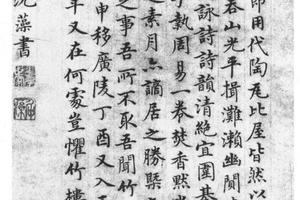 即用代陶瓦比屋皆然以
吞山光平挹灘瀨幽闃
詠詩詩韻清絕宜圍棊
手執周易一卷焚香默
素月亦謫居之勝槩
之事吾所不取吾聞竹
申移廣陵丁酉又入
年又在何處豈懼竹樓
沈藻書